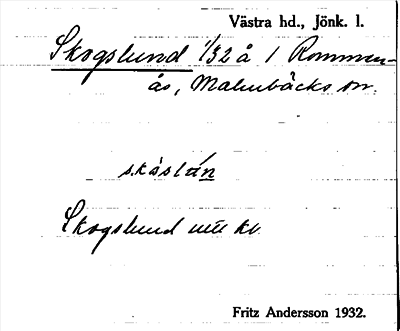 Västra hd., Jönk. l.
Skogslund 1/32 å 1 Rommen-
ås, Malmbäcks sn.
skåslún
Skogslund utt kl.
Fritz Andersson 1932.